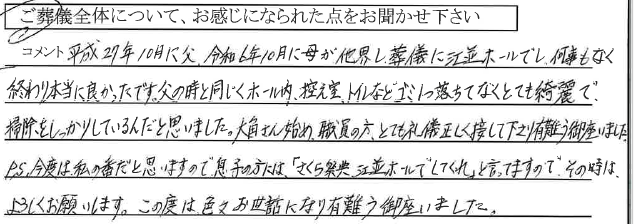 ご葬儀全体について、お感じになられた点をお聞かせ下さい
コメント 平成27年10月に父、令和6年10月に母が他界し葬儀に江並ホールでし、何事もなく
終わり本当に良かったです。父の時と同じくホール内、控え室、トイレなどゴミ1つ落ちてなくとても綺麗で、
掃除をしっかりしているんだと思いました。大角さん始め、職員の方、とても礼儀正しく接して下さり有難う御座いました
P.S.今度は私の番だと思いますので息子の方には、「さくら祭典、江並ホールでしてくれ」と言ってますので、その時は、
よろしくお願いします。この度は色々お世話になり有難う御座いました。